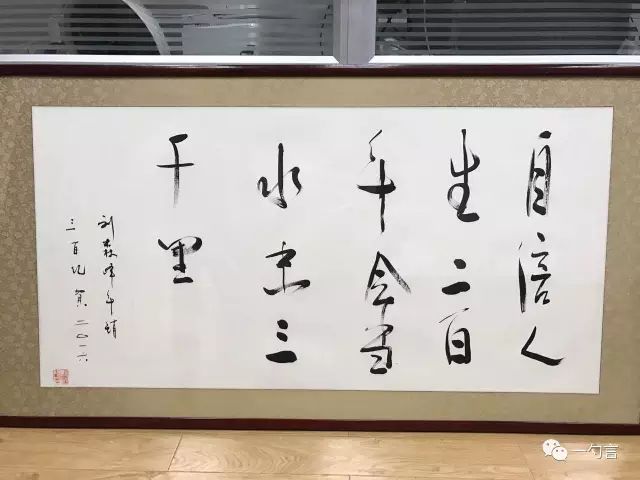 自信人
生二百
年会当
水击三
千里
刘森峰年
三百 贺 二〇一六
一勺言